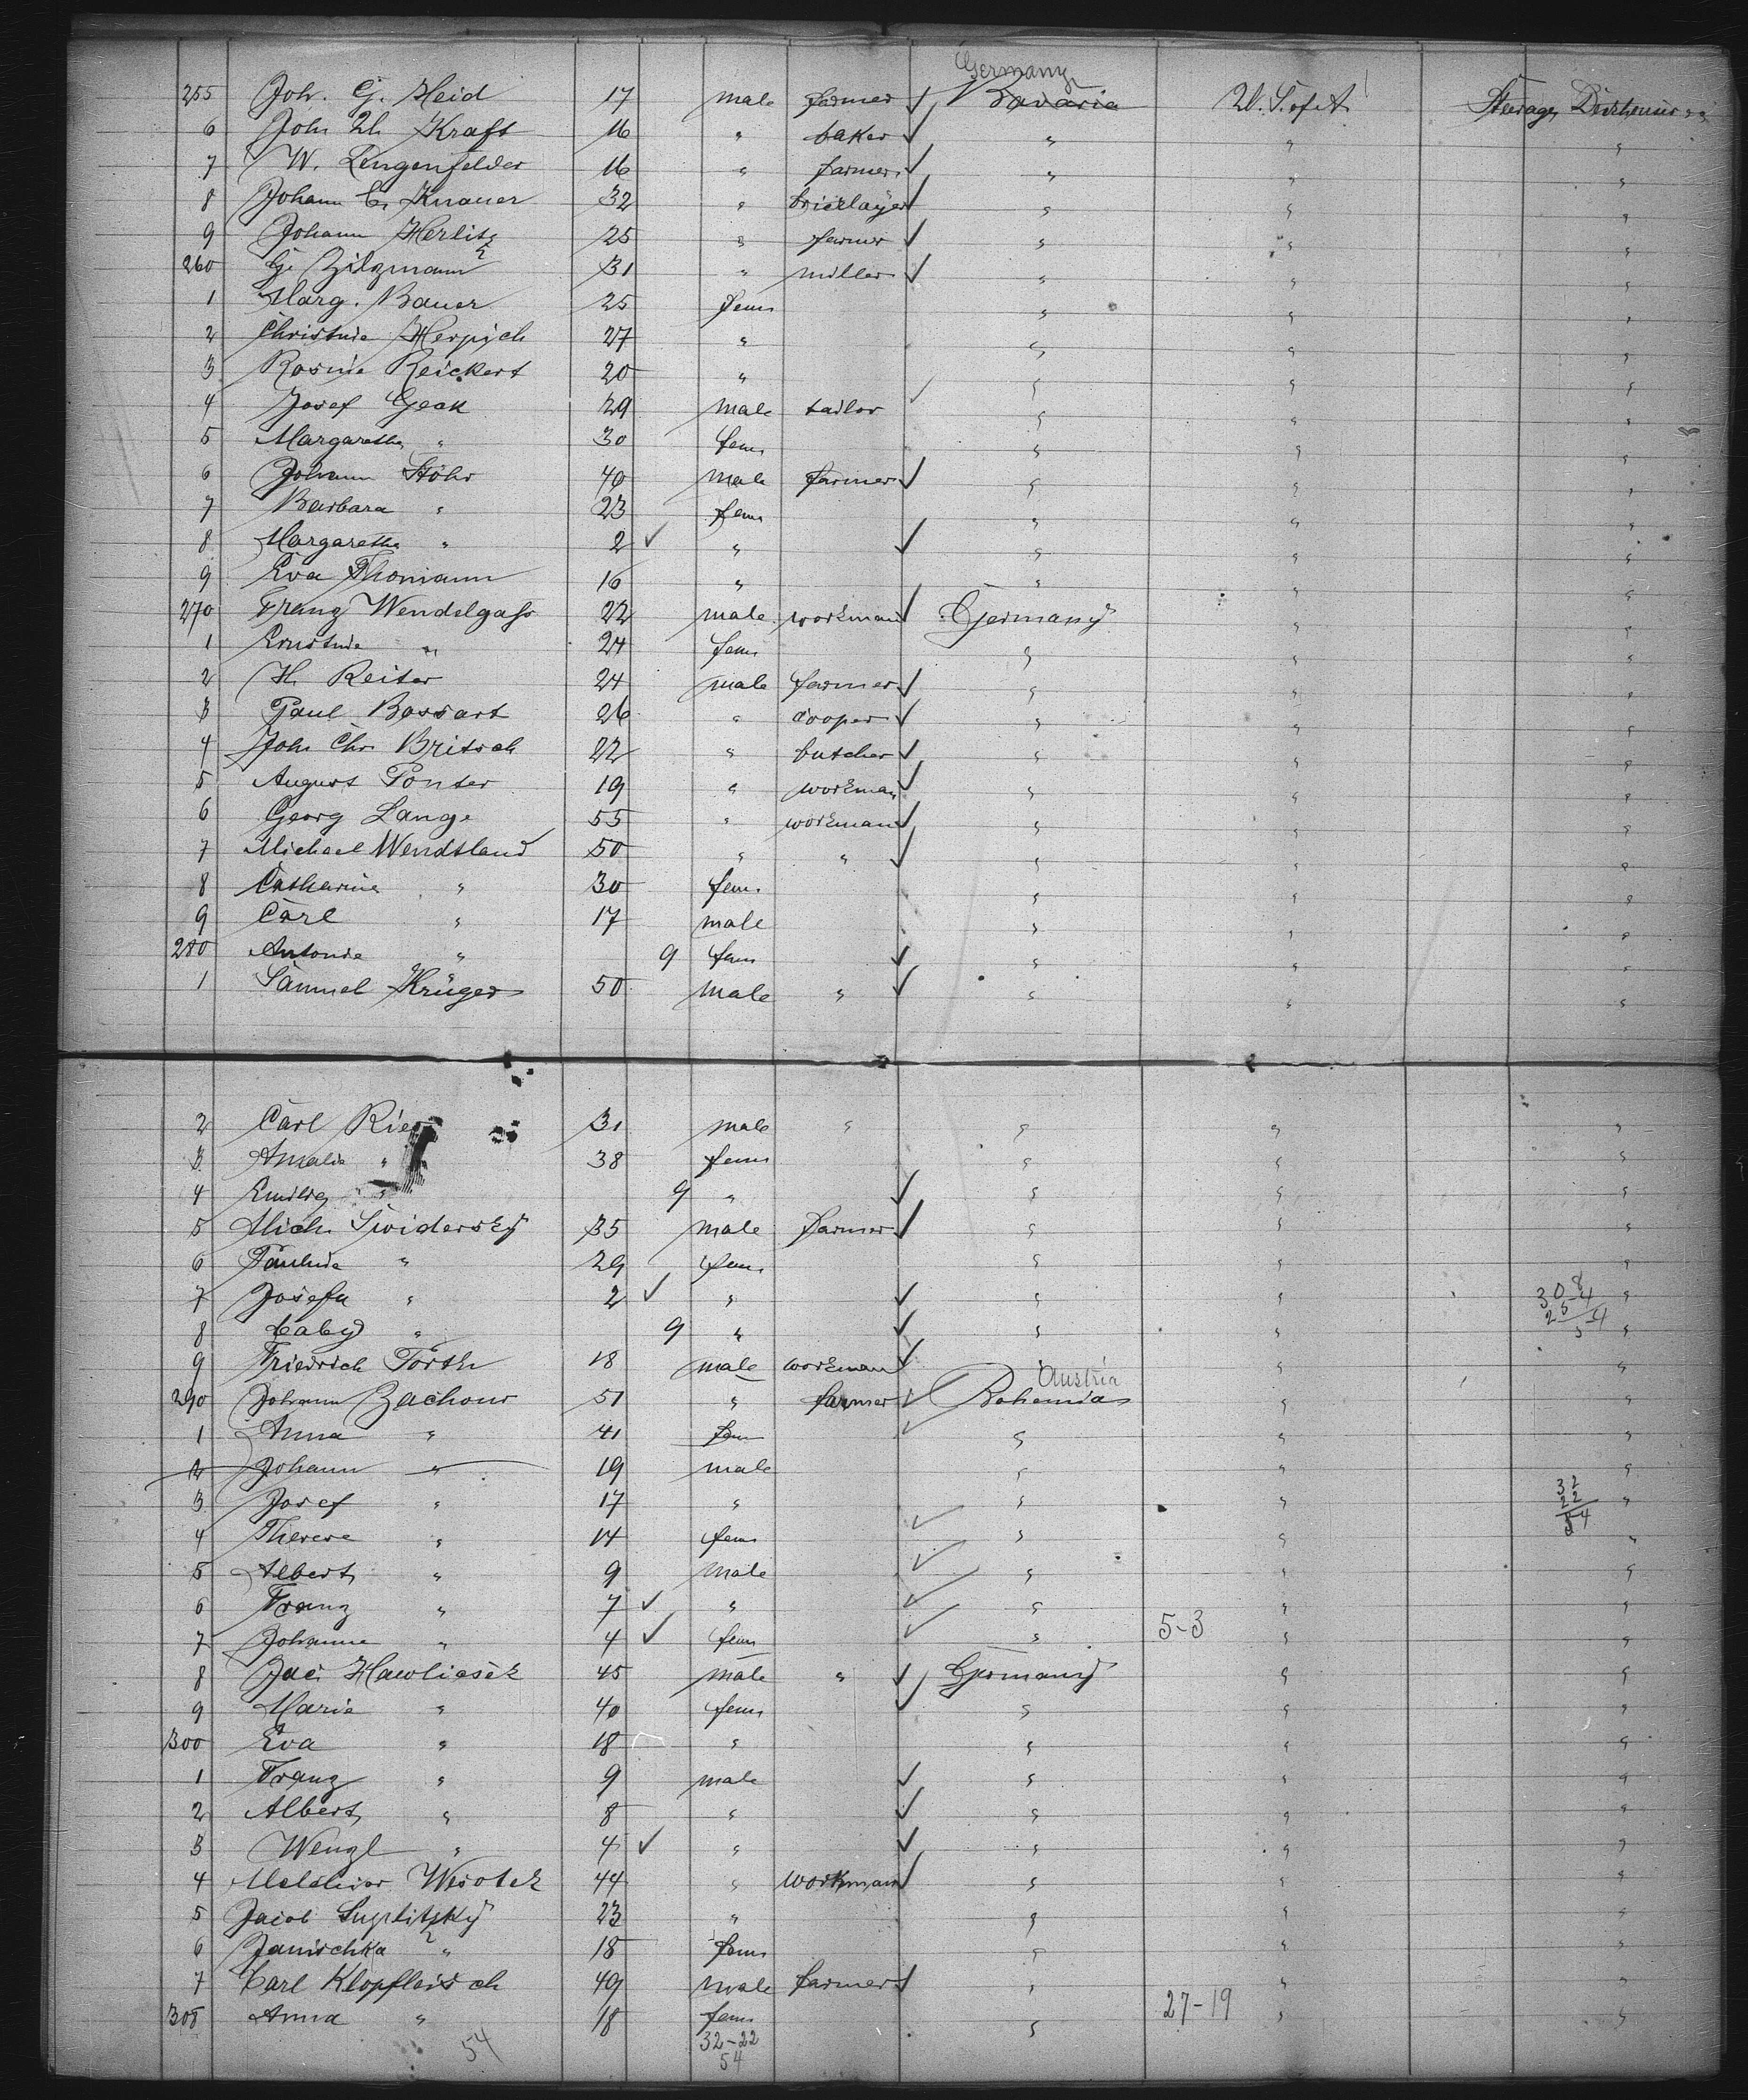 Germany
255 Joh. G. Heid 17 male farmer ✓ Bavaria U.S. of A. Steerage
6 Joh. Kraft 16 " baker ✓ " " "
7 W. Lengenfelder 16 " farmer ✓ " " "
8 Johann C. Knauer 32 " bricklayer ✓ " " "
9 Johann Herlitz 25 " farmer ✓ " " "
260 G. Zilzmann 31 " miller ✓ " " "
1 Marg. Bauer 25 fem " " "
2 Christine Herpich 27 " " " "
3 Rosine Reickert 20 " " " "
4 Josef Geck 29 male tailor ✓ " " "
5 Margaretha " 30 fem " " "
6 Johann Stöhr 40 male farmer ✓ " " "
7 Barbara " 23 fem " " "
8 Margaretha " 2 ✓ " ✓ " " "
9 Eva Thomann 16 " " " "
270 Franz Wendelgass 22 male workman ✓ Germany " "
1 Ernstine " 24 fem " " "
2 H. Reiter 24 male farmer ✓ " " "
3 Paul Bossart 26 " cooper ✓ " " "
4 Joh. Chr. Britsch 22 " butcher ✓ " " "
5 August Ponter 19 " workman ✓ " " "
6 Georg Lange 55 " workman ✓ " " "
7 Michael Wendtland 50 " " ✓ " " "
8 Catharina " 30 fem " " "
9 Carl " 17 male " " "
280 Antonie " 9 fem ✓ " " "
1 Samuel Krüger 50 male " ✓ " " "
2 Carl 31 male " " " "
3 Amalie " 38 fem " " "
4 " 9 " ✓ " " "
5 Mich. Swidersky 35 male farmer ✓ " " "
6 Pauline " 29 fem " " "
7 Josefa " 2 ✓ " ✓ " " "
8 baby " 9 " ✓ " " "
9 Friedrich Porth 18 male workman ✓ " "
Austria
290 Johann Zachow 51 " farmer ✓ Bohemia " "
1 Anna " 41 fem ✓ " " "
2 Johann " 19 male " " "
3 Josef " 17 " " " "
32
22
54
4 Therese " 14 fem ✓ " " "
5 Albert " 9 male ✓ " " "
6 Franz " 7 ✓ " ✓ " " "
7 Johanna " 4 ✓ fem ✓ " 5-3 " "
8 Jac. Hawlicsek 45 male " ✓ Germany " "
9 Marie " 40 fem ✓ " " "
300 Eva " 18 " " " "
1 Franz " 9 male ✓ " " "
2 Albert " 8 " ✓ " " "
3 Wenzl " 4 ✓ " ✓ " " "
4 Melchior Wesotek 44 " workman ✓ " " "
5 Jacob 23 " " " "
6 Janischka " 18 fem " " "
7 Carl Klopfleisch 49 male farmer ✓ " " "
308 Anna " 18 fem " 27-19 " "
54 32-22
54